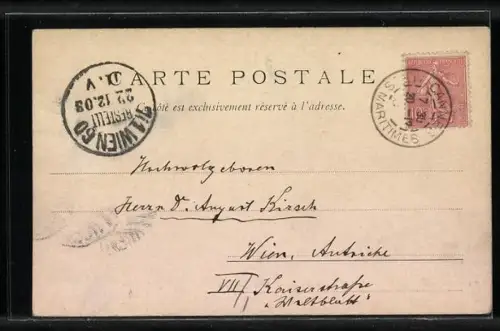 CARTE POSTALE
Ce côté est exclusivement réservé à l'adresse.
9/1 WIEN 60
BESTELLT
22.12.03
II.V
CANNES
MARITIMES
7 30
Hochwolgeboren
Herrn Dr. August Kirsch
Wien, Autriche
VII/ Kaiserstraße
"Weltblatt"